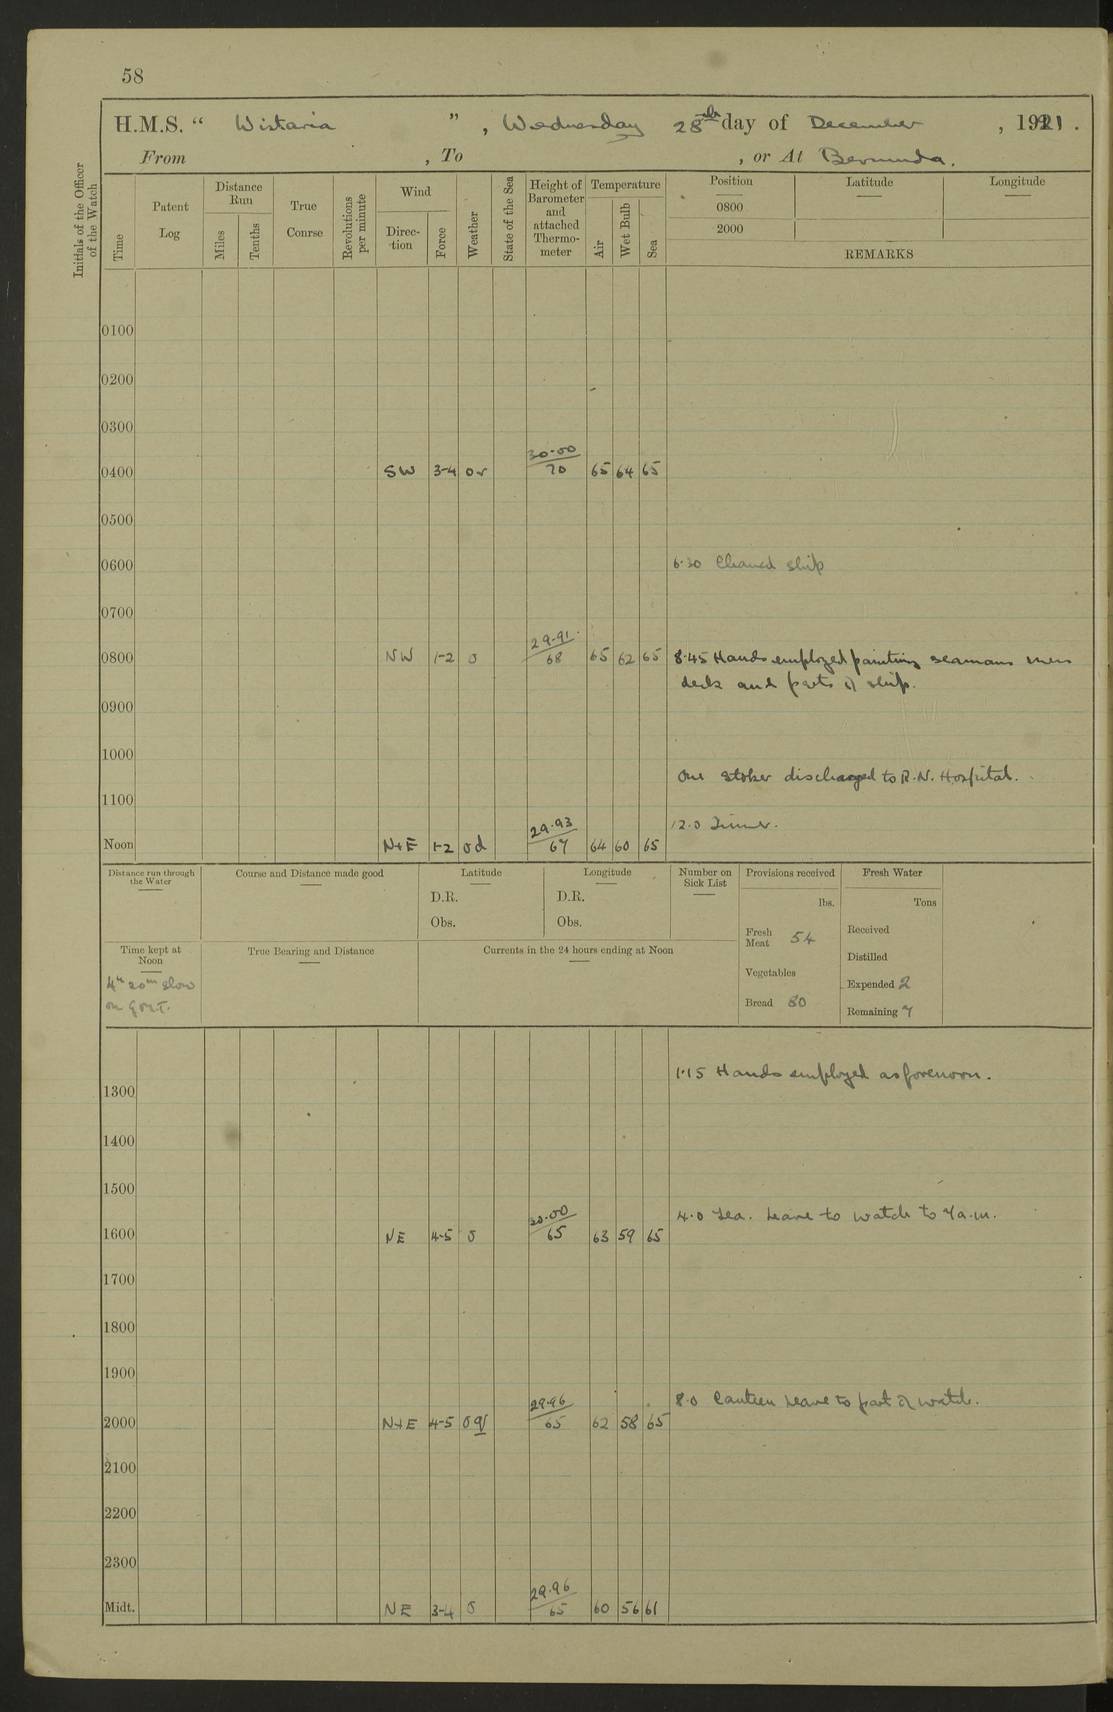 58
H.M.S. “ Wistaria ” , Wednesday 28th day of December , 1921 .
From , To , or At Bermuda.
Initials of the Officer of the Watch
Time
Patent Log
Distance Run
Miles
Tenths
True Course
Revolutions per minute
Wind
Direc-tion
Force
Weather
State of the Sea
Height of Barometer and attached Thermo-meter
Temperature
Air
Wet Bulb
Sea
Position Latitude Longitude
0800
2000
REMARKS
0100
0200
0300
30.00
0400 SW 3-4 or 70 65 64 65
0500
0600 6.30 Cleaned ship
0700
29.91
0800 NW 1-2 o 68 65 62 65 8.45 Hands employed painting seamans mess
deck and parts of ship.
0900
1000
One stoker discharged to R.N. Hospital.
1100
29.93 12.0 Dinner.
Noon NxE 1-2 od 67 64 60 65
Distance run through the Water
Course and Distance made good
Latitude
D.R.
Obs.
Longitude
D.R.
Obs.
Number on Sick List
Provisions received
lbs.
Fresh Meat 54
Vegetables
Bread 80
Fresh Water
Tons
Received
Distilled
Expended 2
Remaining 7
Time kept at Noon
4h 20m slow
on GMT.
True Bearing and Distance
Currents in the 24 hours ending at Noon
1.15 Hands employed as forenoon.
1300
1400
1500
30.00 4.0 Tea. Leave to watch to 7 a.m.
1600 NE 4-5 o 65 63 59 65
1700
1800
1900
29.96 8.0 Canteen leave to part of watch.
2000 NxE 4-5 oq 65 62 58 65
2100
2200
2300
29.96
Midt. NE 3-4 o 65 60 56 61